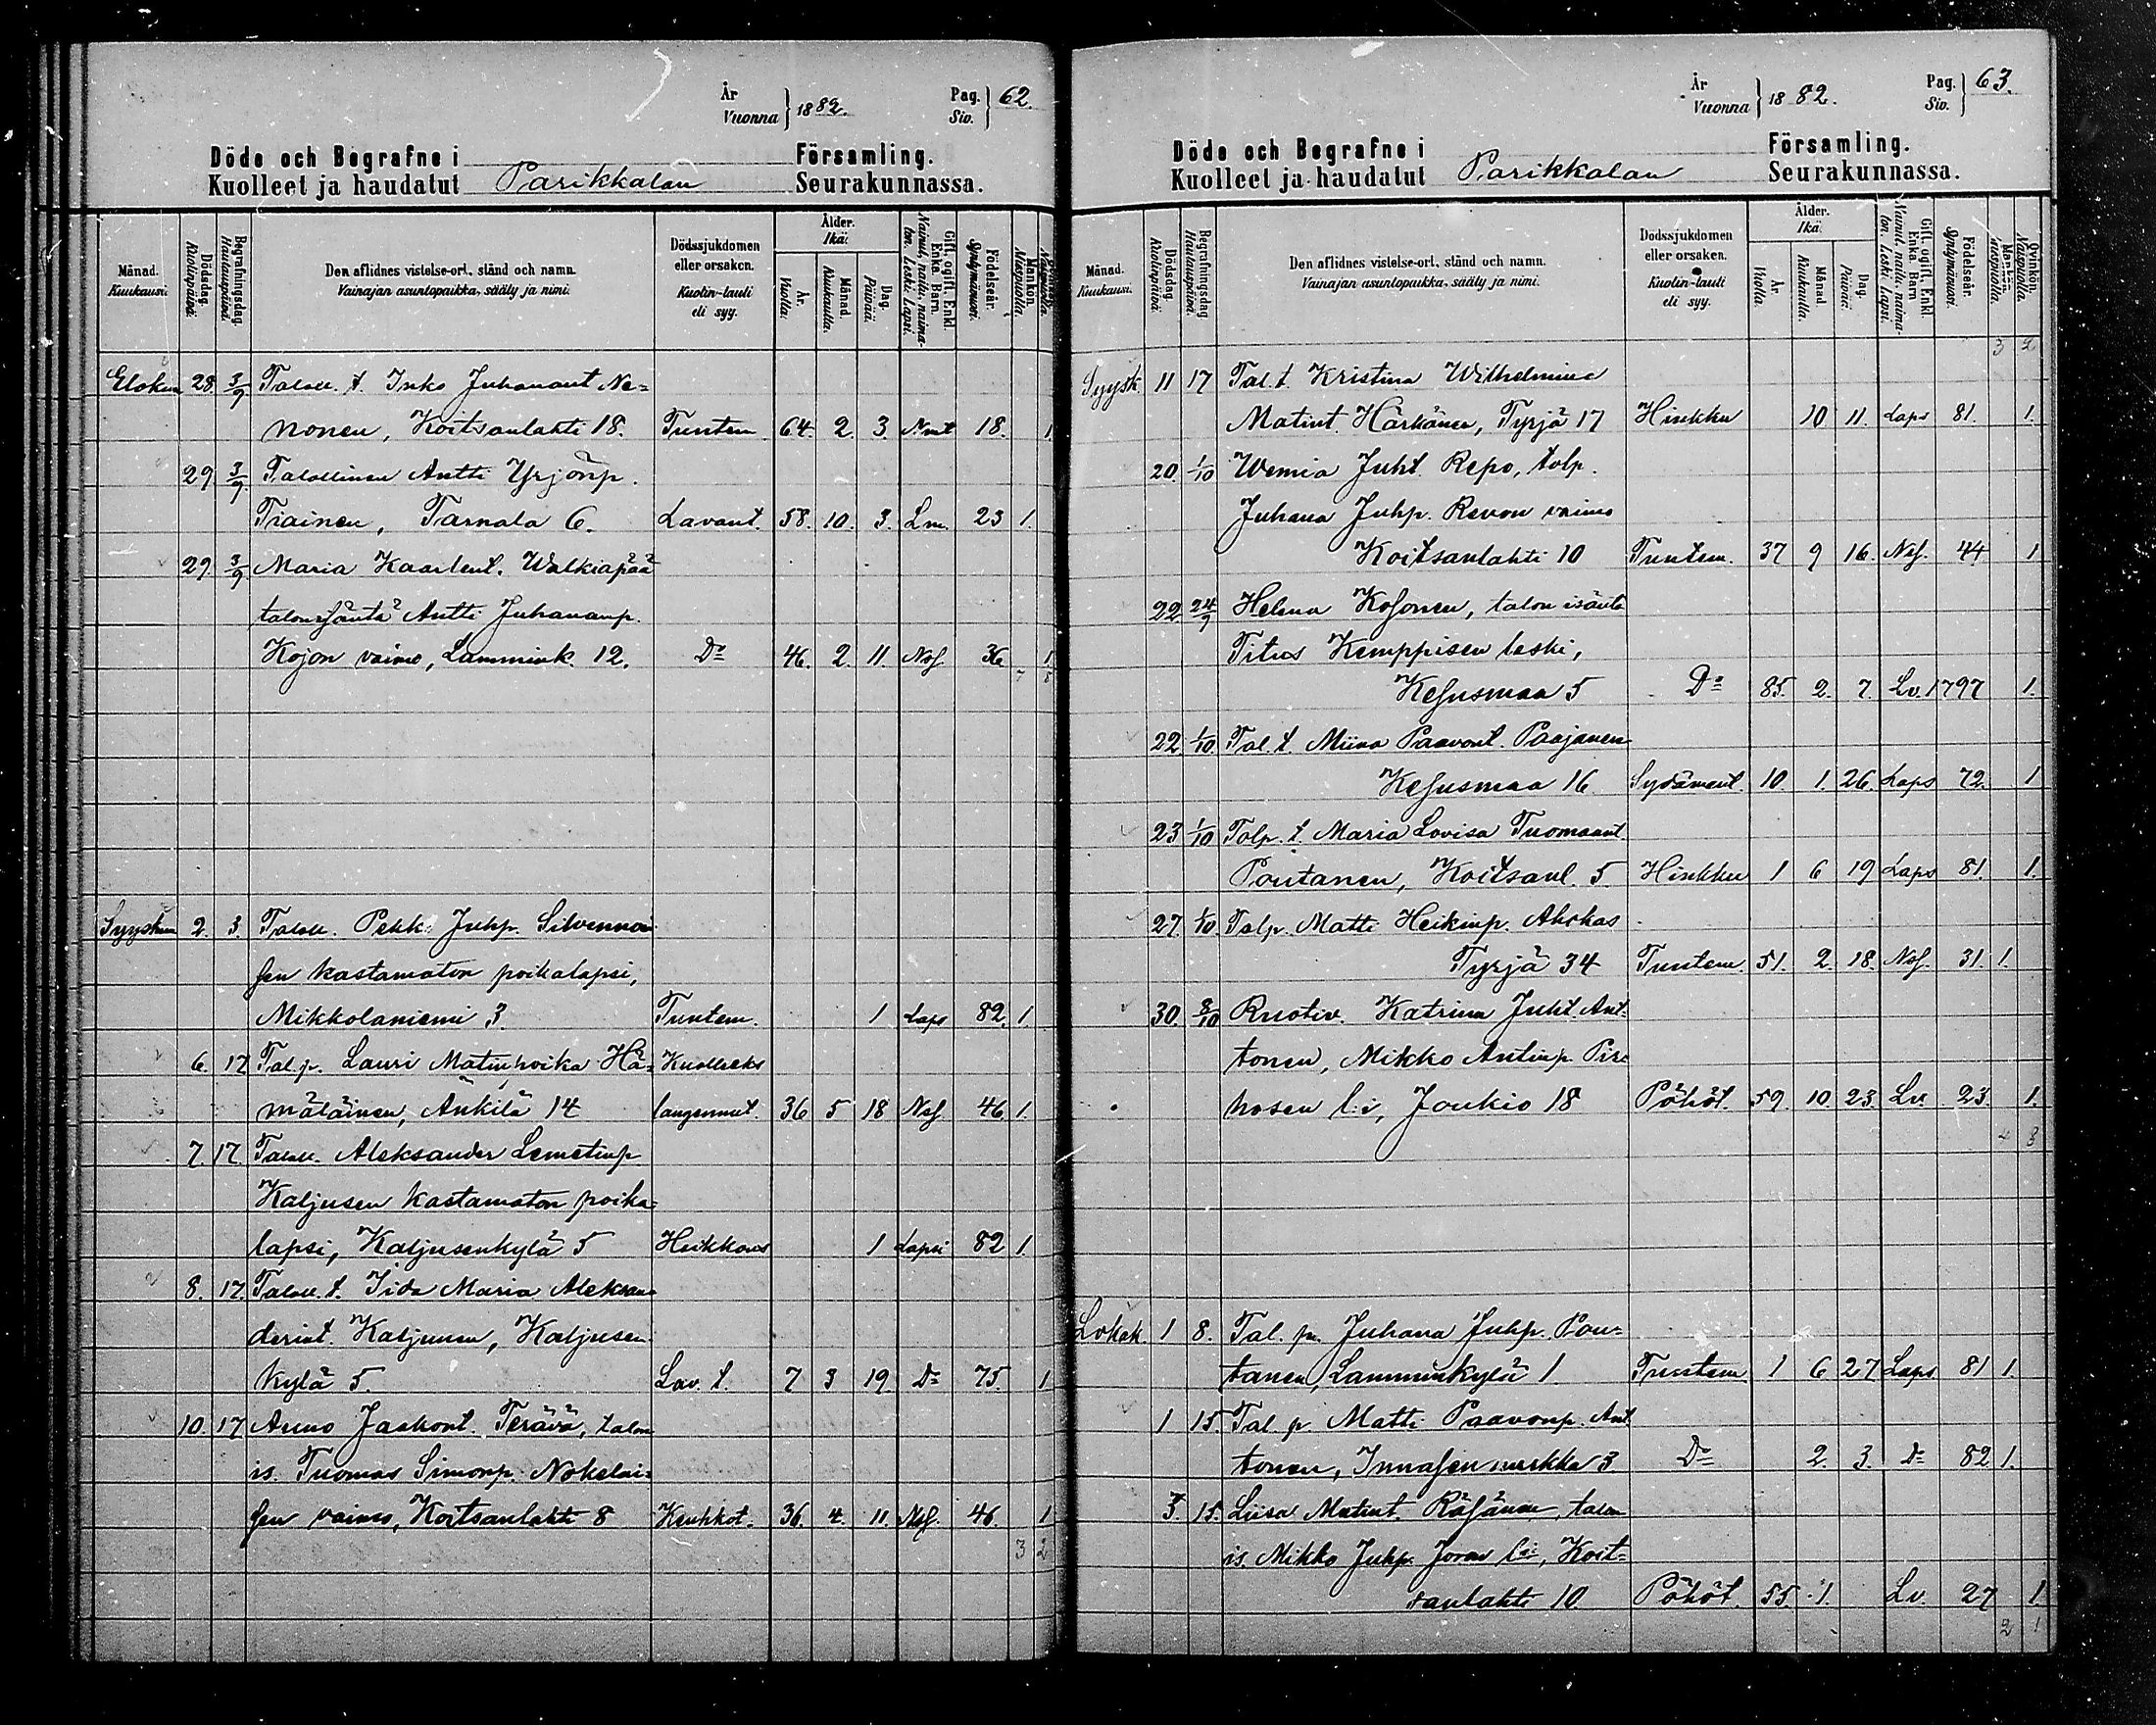 År
Vuonna } 1882. Pag.
Siv. } 62.
Döde och Begrafne i Församling.
Kuolleet ja haudatut Parikkalan Seurakunnassa.
Månad.
Kuukausi.
Dödsdag.
Kuolinpäivä.
Begrafningsdag.
Hautauspäivä.
Den aflidnes vistelse-ort, stånd och namn.
Vainajan asuntopaikka, sääty ja nimi.
Dödssjukdomen
eller orsaken.
Kuolin-tauti
eli syy.
Ålder.
Ikä.
År.
Vuotta.
Månad.
Kuukautta.
Dag.
Päivää.
Gift, ogift, Enkl.
Enka. Barn.
Nainut, naitu, naima-
ton. Leski. Lapsi.
Födelseår.
Syntymävuosi.
Mankön.
Miespuolia.
Elokuu 28. 3/9 Taloll. t. Inko Juhanant. Ne=
nonen, Koitsanlahti 18. Tuntem. 64. 2. 3. Nmt 18. 1.
29 3/9 Talollinen Antti Yrjönp.
Tiainen, Tarnala 6. Lavant. 58. 10. 3. Lm. 23 1.
29. 3/9 Maria Kaarlent. Walkiapää
talonisäntä Antti Juhananp.
Kojon vaimo, Lammink. 12. Do 46. 2. 11. Nsf. 36 1.
7 5
Syyskuu 2. 3. Taloll. Pekk. Juhp. Silvennoi
sen kastamaton poikalapsi,
Mikkolaniemi 3 Tuntem. 1 Laps 82. 1.
6. 17 Tal. p. Lauri Matinpoika Hä= Kuolleeks
mäläinen, Änkilä 14 langennut. 36 5 18 Nsf. 46 1.
7. 17. Taloll. Aleksander Lemetinp.
Kaljusen kastamaton poika=
lapsi, Kaljusenkylä 5 Heikkous 1 Lapsi 82 1.
8. 17. Taloll. t. Iida Maria Aleksan=
derint. Kaljunen, Kaljusen
kylä 5. Lav. t. 7 3 19. Do 75. 1
10. 17 Anno Jaakont. Terävä, talon
is. Tuomas Simonp. Nokelai=
sen vaimo, Koitsanlahti 8 Keuhkot. 36. 4. 11. Nsf. 46. 1
3 2
År
Vuonna } 1882. Pag.
Siv. } 63.
Döde och Begrafne i Församling.
Kuolleet ja haudatut Parikkalan Seurakunnassa.
Månad.
Kuukausi.
Dödsdag.
Kuolinpäivä.
Begrafningsdag
Hautauspäivä.
Den aflidnes vistelse-ort, stånd och namn.
Vainajan asuntopaikka, sääty ja nimi.
Dödssjukdomen
eller orsaken.
Kuolin-tauti
eli syy.
Ålder.
Ikä.
År.
Vuotta.
Månad.
Kuukautta.
Dag.
Päivää.
Gift, ogift, Enkl.
Enka. Barn
Nainut, naitu, naima-
ton. Leski. Lapsi.
Födelseår.
Syntymävuosi.
Mankön.
Miespuolia.
Qvinkön.
Naispuolia.
3 2
Syysk. 11 17 Tal. t. Kristina Wilhelmina
Matint. Härkänen, Tyrjä 17 Hinkku 10 11. Laps 81. 1.
20. 1/10 Wemia Juht. Repo, talp.
Juhana Juhp. Revon vaimo
Koitsanlahti 10 Tuntem. 37 9 16. Nsf. 44 1
22. 24/9 Helena Kosonen, talon isäntä
Titus Kemppisen leski,
Kesusmaa 5 Do 85. 2. 7. Lv. 1797 1.
22 1/10. Tal. t. Miina Paavont. Paajanen
Kesusmaa 16 Sydäment. 10. 1. 26. Laps 72. 1
23 1/10 Talp. t. Maria Lovisa Tuomaant.
Poutanen, Koitsanl. 5 Hinkku 1 6 19 Laps 81. 1.
27. 1/10. Talp. Matti Heikinp. Ahokas
Tyrjä 34 Tuntem. 51. 2. 18. Nsf. 31. 1.
30. 8/10 Ruotiv. Katrina Juht. Ant=
tonen, Mikko Antinp. Pir=
hosen l:i, Joukio 18 Pöhöt. 59. 10. 23. Lv. 23. 1.
4 8
Lokak. 1 8. Tal. p. Juhana Juhp. Pou=
tanen, Lamminkylä 1 Tuntem. 1 6 27 Laps 81 1.
1 15. Tal. p. Matti Paavonp. Ant
tonen, Innasennurkka 3. Do 2. 3. Do 82 1.
3. 15. Liisa Matint. Räsänen, talon
is. Mikko Juhp. l:i, Koit=
sanlahti 10 Pöhöt. 55. 1. Lv. 27 1
2 1